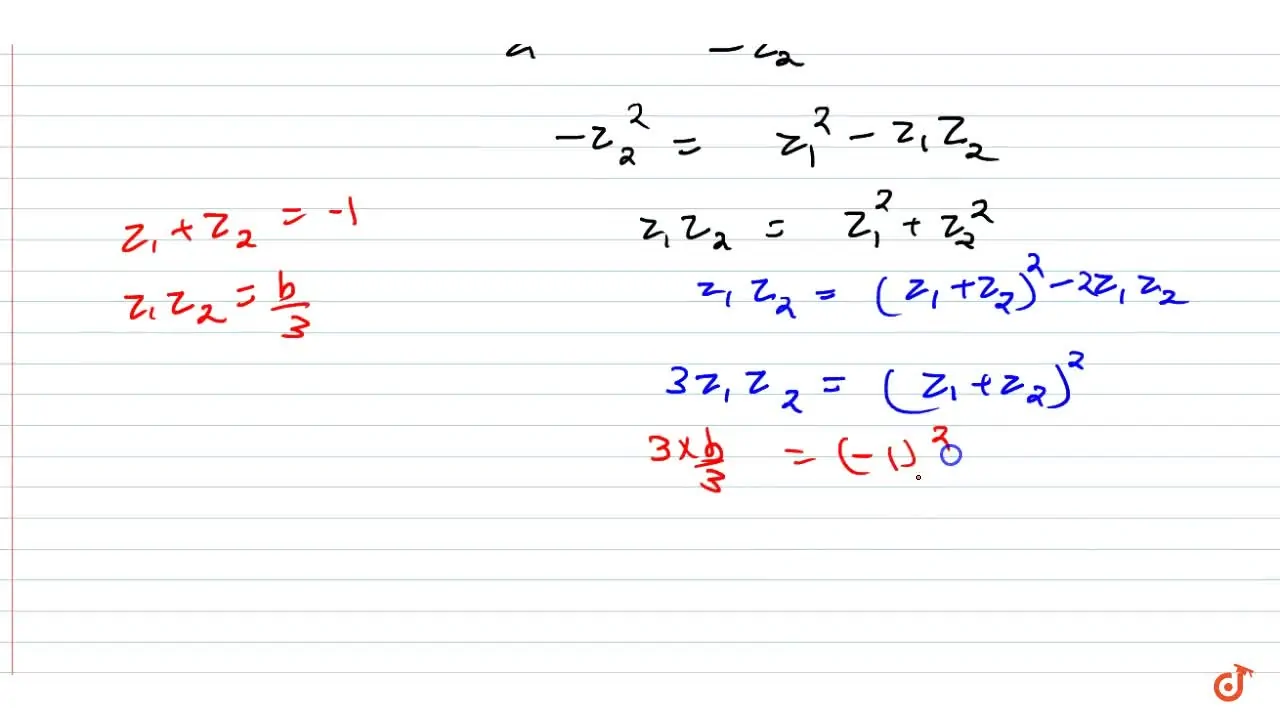 -z₂² = z₁² - z₁z₂
z₁ + z₂ = -1
z₁z₂ = z₁² + z₂²
z₁z₂ = b/3
z₁z₂ = (z₁ + z₂)² - 2z₁z₂
3z₁z₂ = (z₁ + z₂)²
3 × b/3 = (-1)²